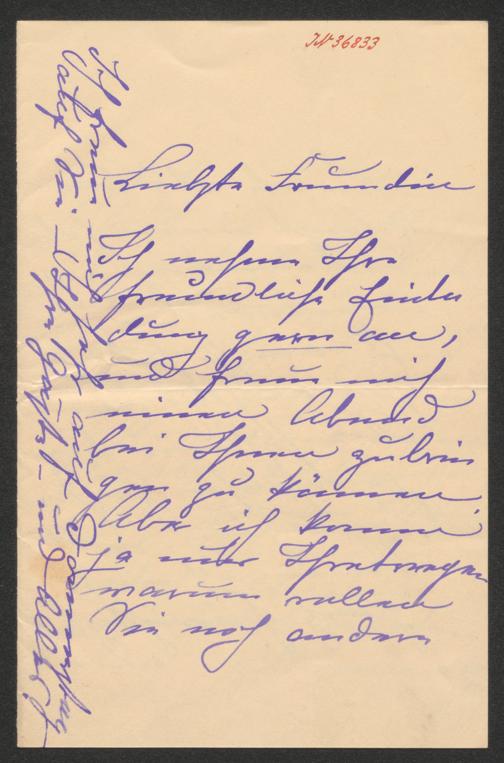 IN 36833
Liebste Freundin
Ich nehme Ihre
freundliche Einla
dung gern an,
und freue mich
einen Abend
bei Ihnen zubrin
gen zu können.
Aber ich komme
ja nur Ihretwegen
warum wollen
Sie noch andere
Ich freue mich sehr auf Donnerstag
auf Sie Ihre